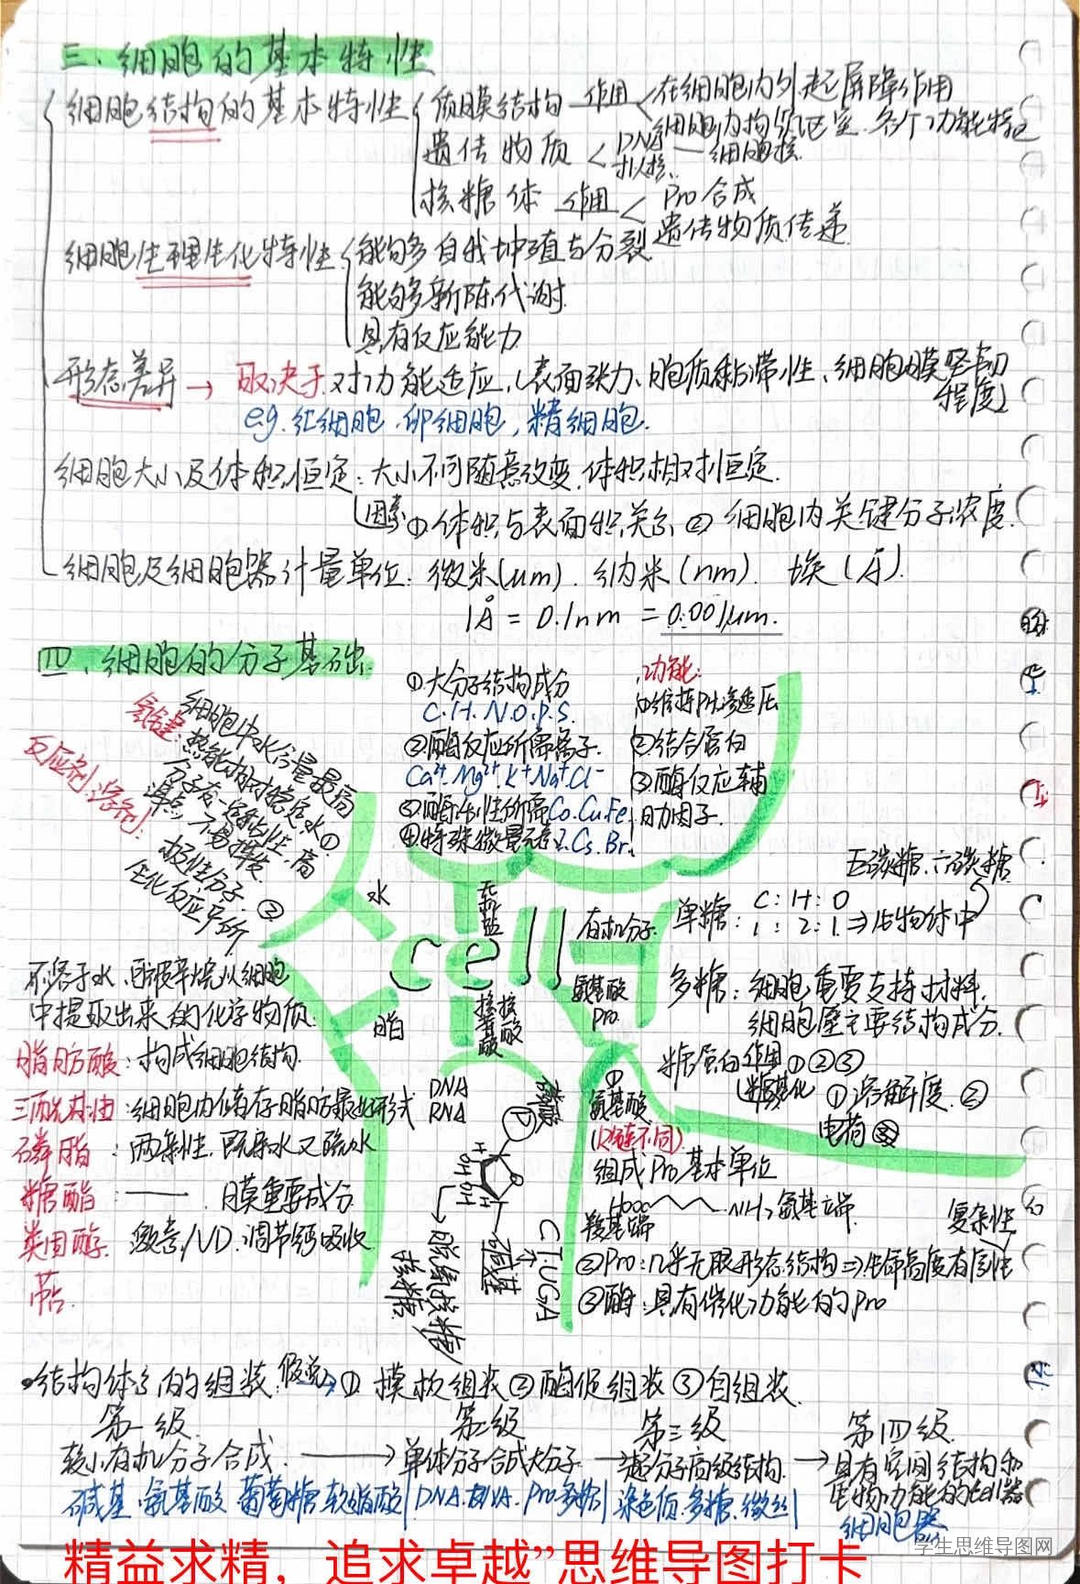 三、细胞的基本特性
细胞结构的基本特性
质膜结构 作用 在细胞内外起屏障作用
细胞内构分区室.各个功能特
遗传物质 DNA 细胞核
拟核
核糖体 作用 Pro合成
遗传物质传递
细胞生理生化特性
能够自我增殖与分裂
能够新陈代谢
具有反应能力
形态差异 → 取决于对功能适应,(表面张力、胞质黏滞性、细胞膜坚韧
程度)
e.g.红细胞.卵细胞,精细胞.
细胞大小及体积恒定:大小不同随意改变.体积相对恒定.
因素 ①体积与表面积关系 ② 细胞内关键分子浓度.
细胞及细胞器计量单位:微米(um).纳米(nm).埃(Å).
1Å = 0.1nm = 0.001μm.
四、细胞的分子基础
①大分子结构成分
C.H.N.O.P.S.
②酶反应所需离子.
Ca²⁺.Mg²⁺.K⁺Na⁺Cl⁻
③酶活性所需Co.Cu.Fe
④特殊微量元素I.Cs.Br.
功能:
①维持PH.渗透压
②结合蛋白
③酶反应辅
助因子.
氢键:
细胞中水含量最高
热能相对稳定
水①
分子有一定粘性,高
沸点,不易挥发
反应剂,溶剂:
极性分子.②
生化反应场所
水
无机盐
cell
有机分子
脂
核酸
氨基酸
Pro.
五碳糖.六碳糖
单糖: C:H:O
1:2:1⇒生物体中
多糖:细胞重要支持材料.
细胞壁主要结构成分.
糖蛋白 作用 ①②③
糖基化 ①溶解度.②
电荷③
不溶于水,可被苯烷从细胞
中提取出来的化学物质.
脂肪酸:构成细胞结构
三酰甘油:细胞内储存脂肪最好形式
磷脂:两亲性.既亲水又疏水
糖酯: —— .膜重要成分
类固醇.激素/VD.调节钙吸收
萜.
DNA
RNA
磷酸
P
O
H
H
OH OH
碱基
C.T.U.G.A
脱氧核糖
核糖
①
氨基酸
(R链不同)
组成Pro基本单位
Hooc NH₂氨基端.
羧基端
复杂性
②Pro:几乎无限形态结构⇒生命高度有序性
③酶:具有催化功能的Pro
结构体系的组装:假说→① 模板组装②酶促组装③自组装
第一级 第二级 第三级 第四级
较小有机分子合成 → 单体分子合成大分子 → 超分子高级结构 → 具有空间结构和
生物功能的细胞器
碱基.氨基酸.葡萄糖.软脂酸 DNA.RNA.Pro.多糖 染色质.多糖.微丝
细胞器
精益求精，追求卓越”思维导图打卡
学生思维导图网